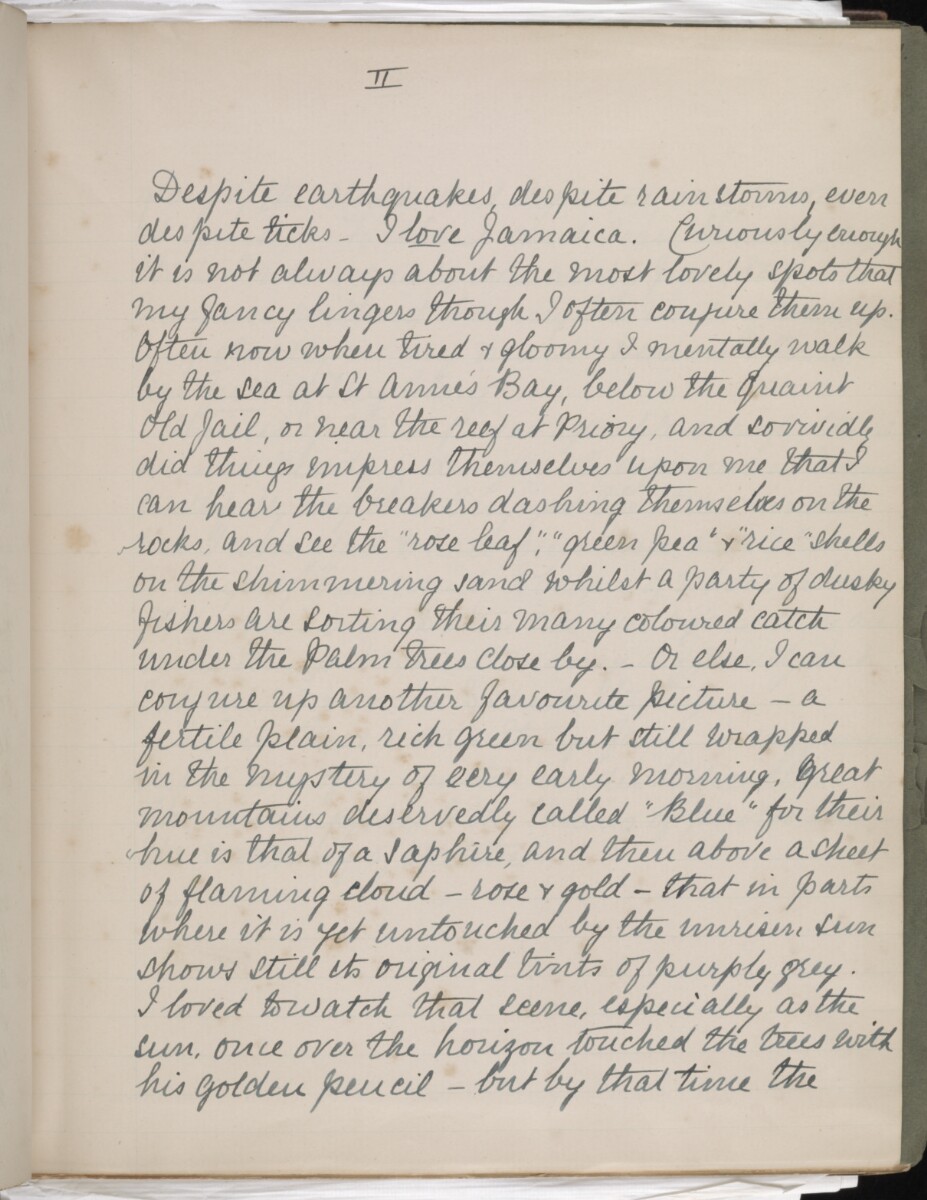 II
Despite earthquakes, despite rainstorms, even
despite ticks - I love Jamaica. Curiously enough
it is not always about the most lovely spots that
my fancy lingers though I often conjure them up.
Often now when tired & gloomy I mentally walk
by the sea at St Anne's Bay, below the quaint
Old Jail, or near the reef at Priory, and so vividly
did things impress themselves upon me that I
can hear the breakers dashing themselves on the
rocks, and see the "rose leaf", "green pea" & "rice" shells
on the shimmering sand whilst a party of dusky
fishers are sorting their many coloured catch
under the Palm trees close by. - Or else, I can
conjure up another favourite picture - a
fertile plain, rich green but still wrapped
in the mystery of very early morning, great
mountains deservedly called "Blue" for their
hue is that of a saphire, and then above a sheet
of flaming cloud - rose & gold - that in parts
where it is yet untouched by the unrisen sun
shows still its original tints of purply grey.
I loved to watch that scene, especially as the
sun, once over the horizon touched the trees with
his golden pencil - but by that time the